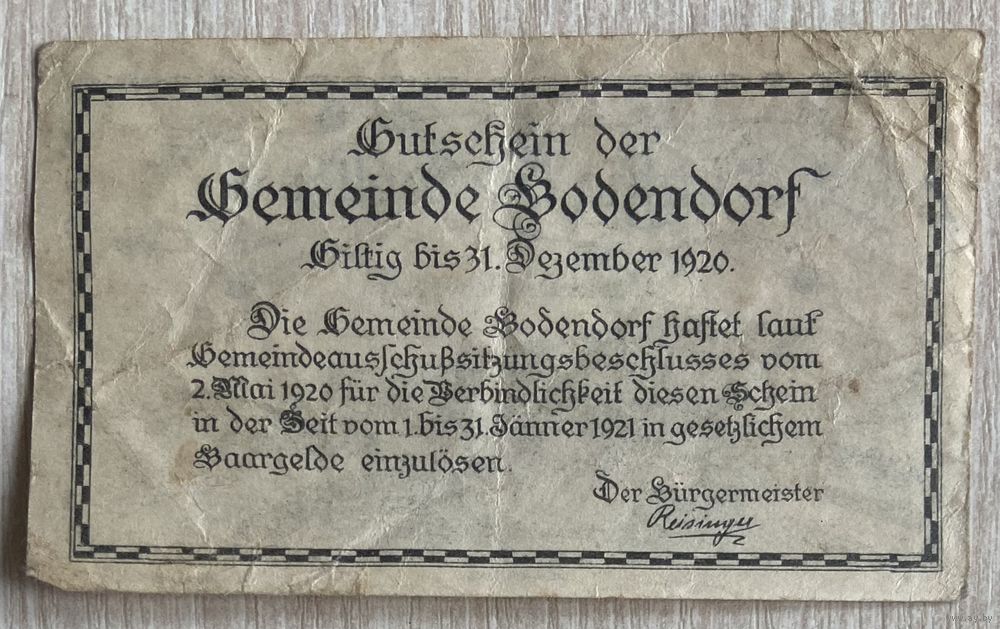 Gutschein der
Gemeinde Bodendorf
Giltig bis 31. Dezember 1920.
Die Gemeinde Bodendorf haftet laut
Gemeindeausschußsitzungsbeschlusses vom
2. Mai 1920 für die Verbindlichkeit diesen Schein
in der Zeit vom 1. bis 31. Jänner 1921 in gesetzlichem
Baargelde einzulösen.
Der Bürgermeister
Reisinger
www.ay.by